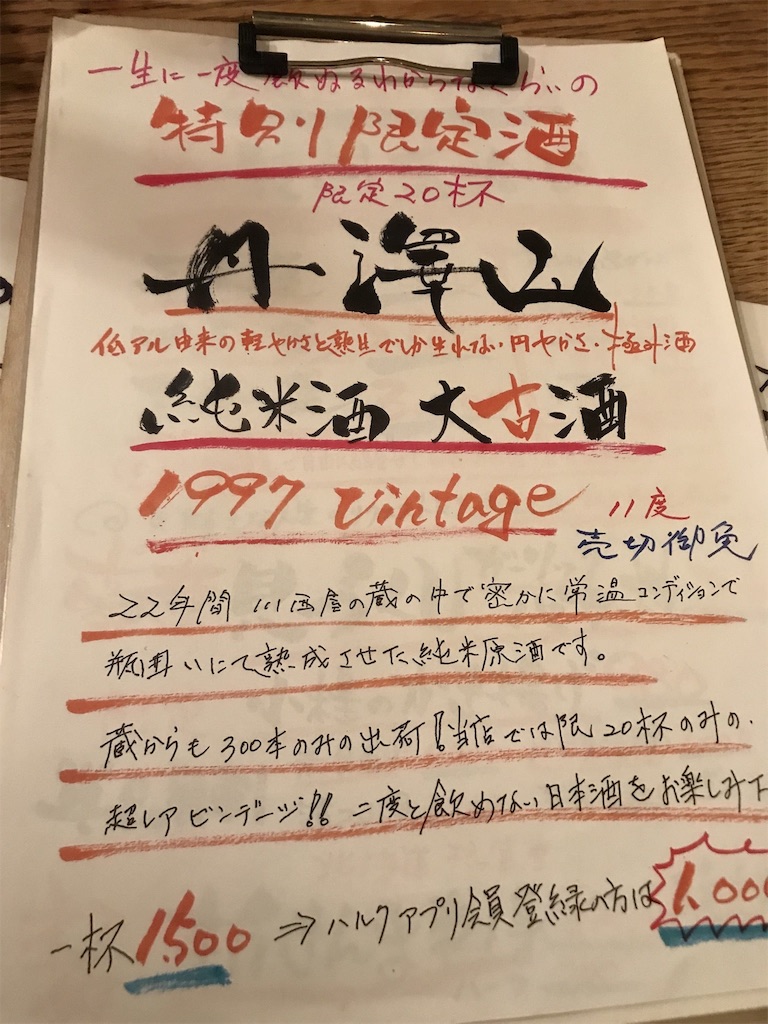 一生に一度飲めるわからないくらいの
特別限定酒
限定20杯
丹澤山
低アル由来の軽やかさと熟生でしか生れない円やかさ・極外酒
純米酒 大古酒
1997 Vintage 11度
売切御免
22年間 川西屋の蔵の中で密かに常温コンディションで
瓶囲いにて熟成させた純米原酒です。
蔵からも300本のみの出荷!当店では限20杯のみの.
超レアビンテージ!!二度と飲めない日本酒をお楽しみ下
一杯1,500 ⇒ハルクアプリ会員登録の方は 1,000